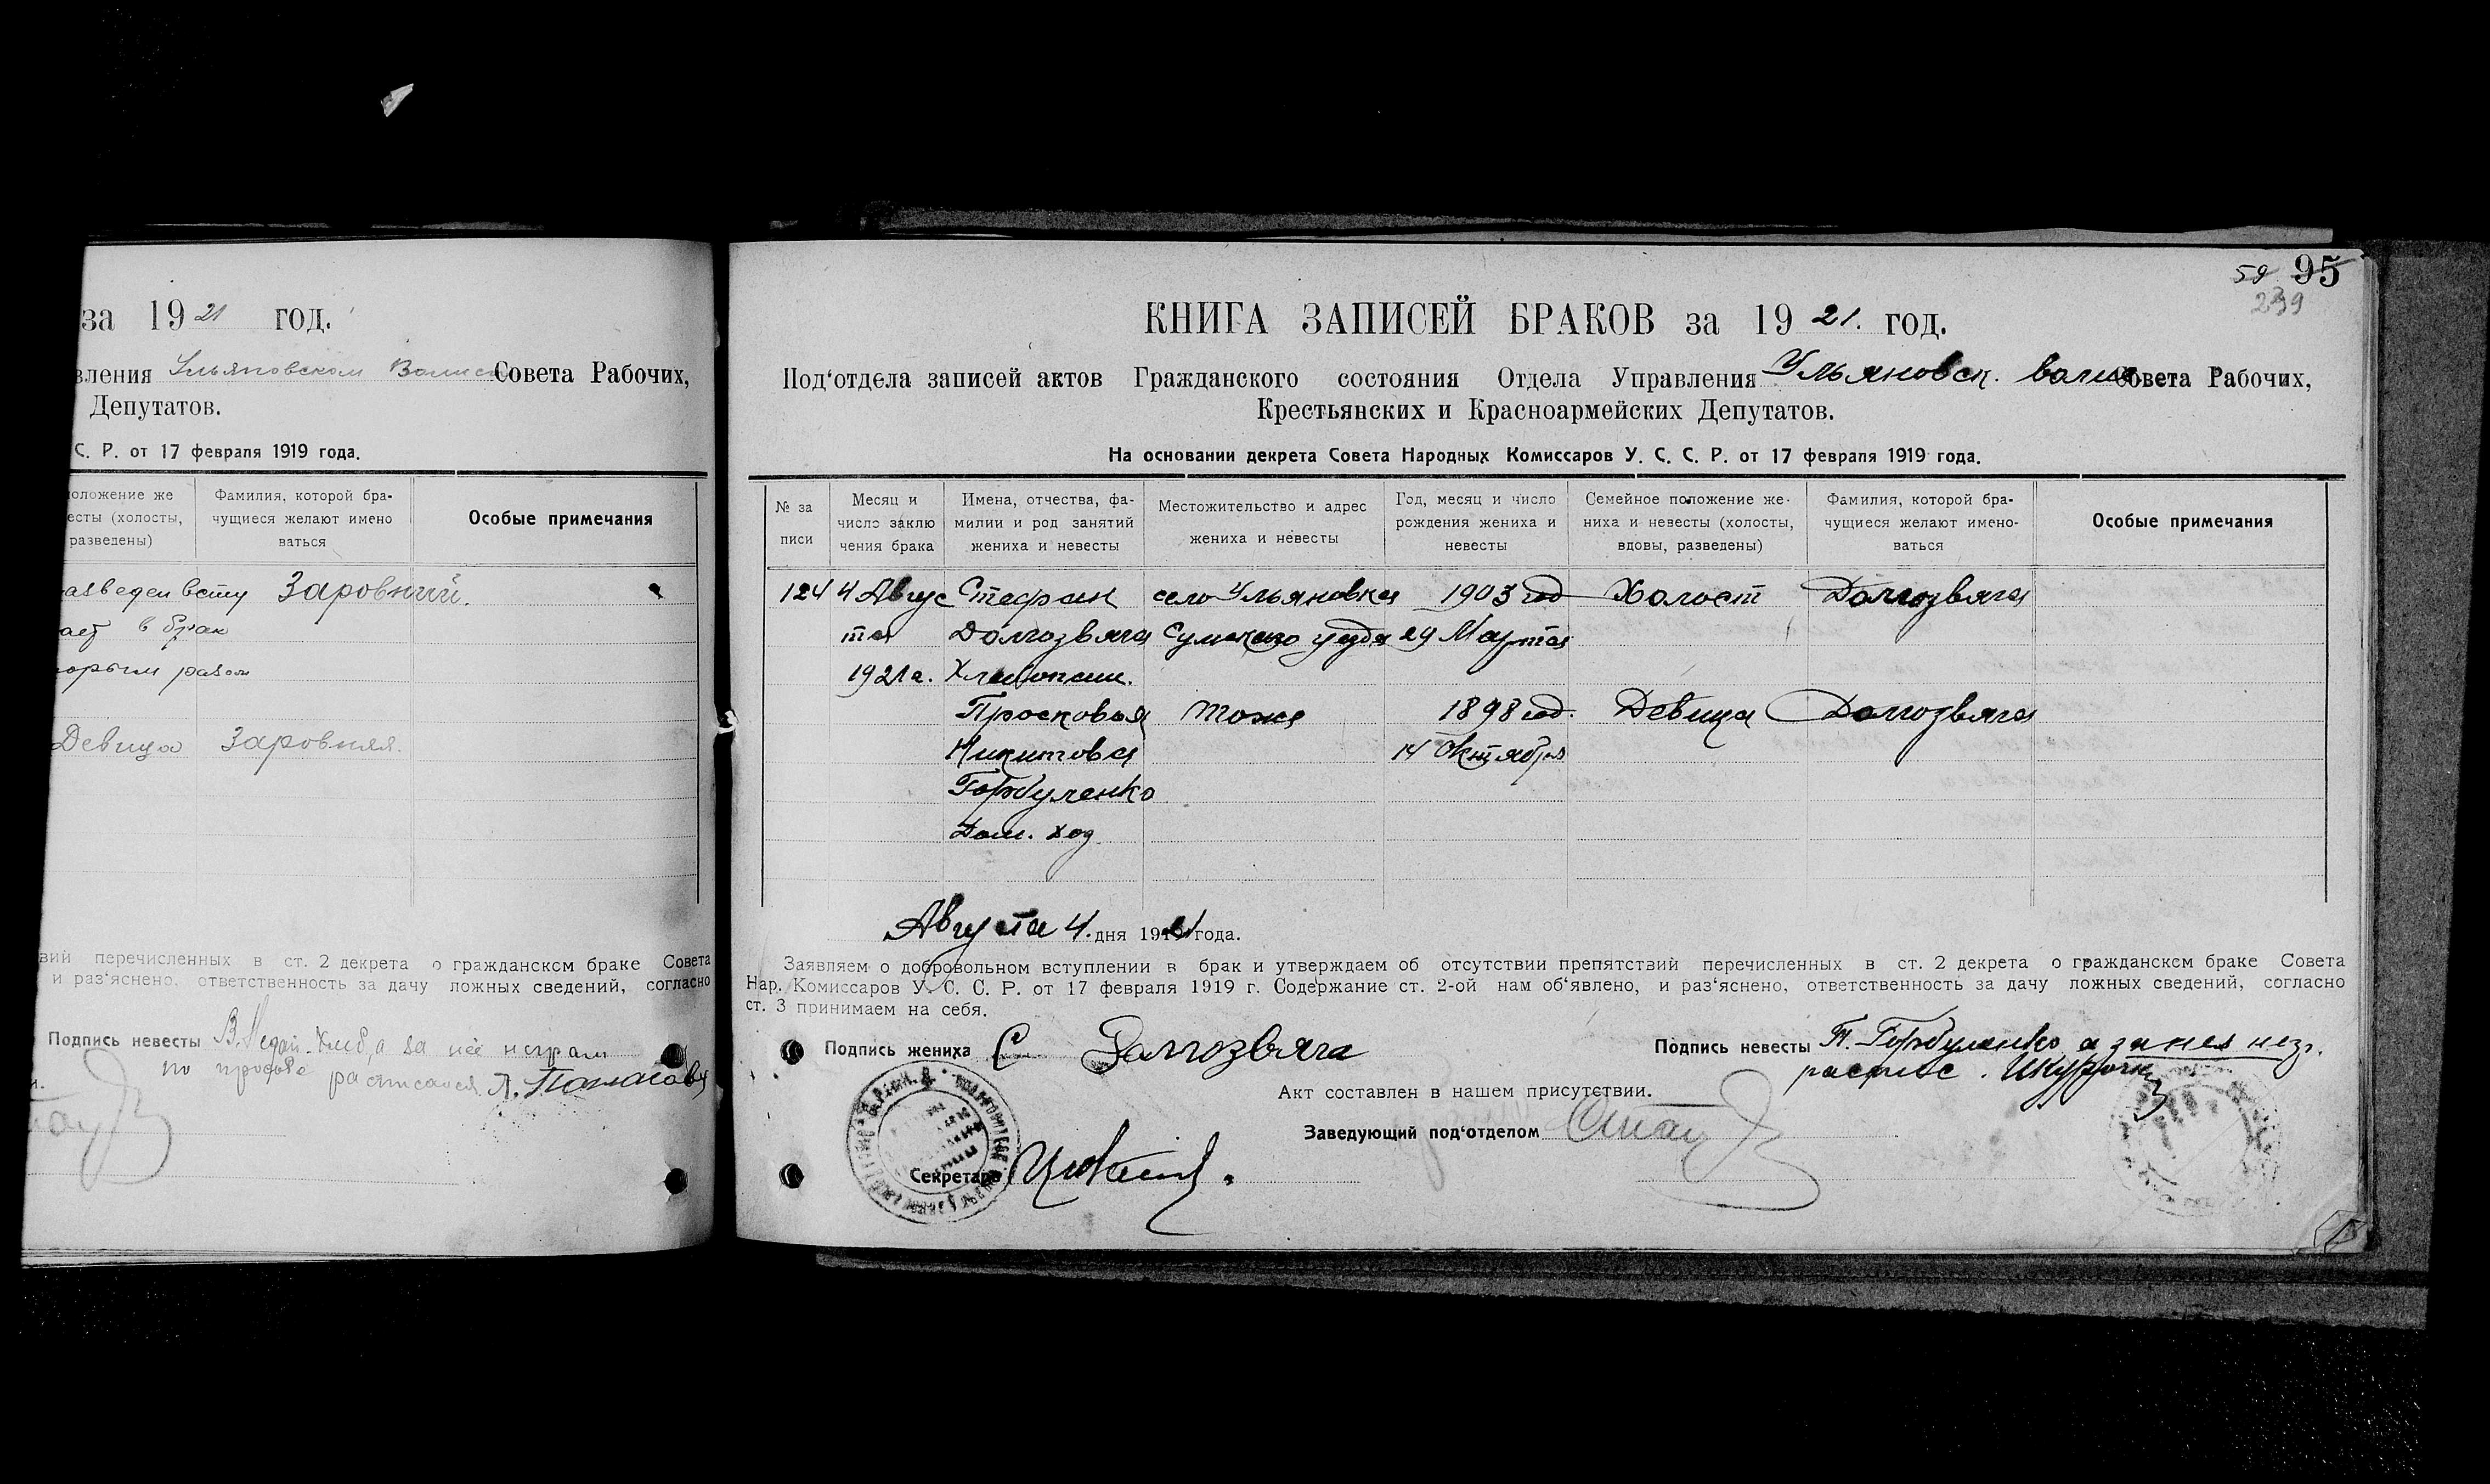 за 1921 год.
вления Ульяновском Волисп Совета Рабочих,
Депутатов.
С. Р. от 17 февраля 1919 года.
оложение же
есты (холосты,
разведены)
Фамилия, которой бра-
чущиеся желают имено
ваться
Особые примечания
Заровный.
в брак
орым разом
Девица Заровняя.
вий перечисленных в ст. 2 декрета о гражданском браке Совета
и раз'яснено, ответственность за дачу ложных сведений, согласно
Подпись невесты а за неё неграм
по просьбе расписался
59 95
239
КНИГА ЗАПИСЕЙ БРАКОВ за 1921. год.
Под'отдела записей актов Гражданского состояния Отдела Управления Ульяновск. волис Совета Рабочих,
Крестьянских и Красноармейских Депутатов.
На основании декрета Совета Народных Комиссаров У. С. С. Р. от 17 февраля 1919 года.
№ за
писи
Месяц и
число заклю
чения брака
Имена, отчества, фа-
милии и род занятий
жениха и невесты
Местожительство и адрес
жениха и невесты
Год, месяц и число
рождения жениха и
невесты
Семейное положение же-
ниха и невесты (холосты,
вдовы, разведены)
Фамилия, которой бра-
чущиеся желают имено-
ваться
Особые примечания
124 4 Авгус Стефан село Ульяновка 1903 год Холост Долгозвяга
та Долгозвяга Сумского уезда 29 Марта
1921 г. Хлебопаш.
Просковья тоже 1898 год. Девица Долгозвяга
Никитовна 14 Октября
Горбуленко
Дом. хоз
Августа 4. дня 1921 года.
Заявляем о добровольном вступлении в брак и утверждаем об отсутствии препятствий перечисленных в ст. 2 декрета о гражданском браке Совета
Нар. Комиссаров У. С. С. Р. от 17 февраля 1919 г. Содержание ст. 2-ой нам об'явлено, и раз'яснено, ответственность за дачу ложных сведений, согласно
ст. 3 принимаем на себя.
Подпись жениха С Долгозвяга
Подпись невесты П. Горбуленко а за нея негр.
распис.
Акт составлен в нашем присутствии.
Заведующий под'отделом
Секретарь